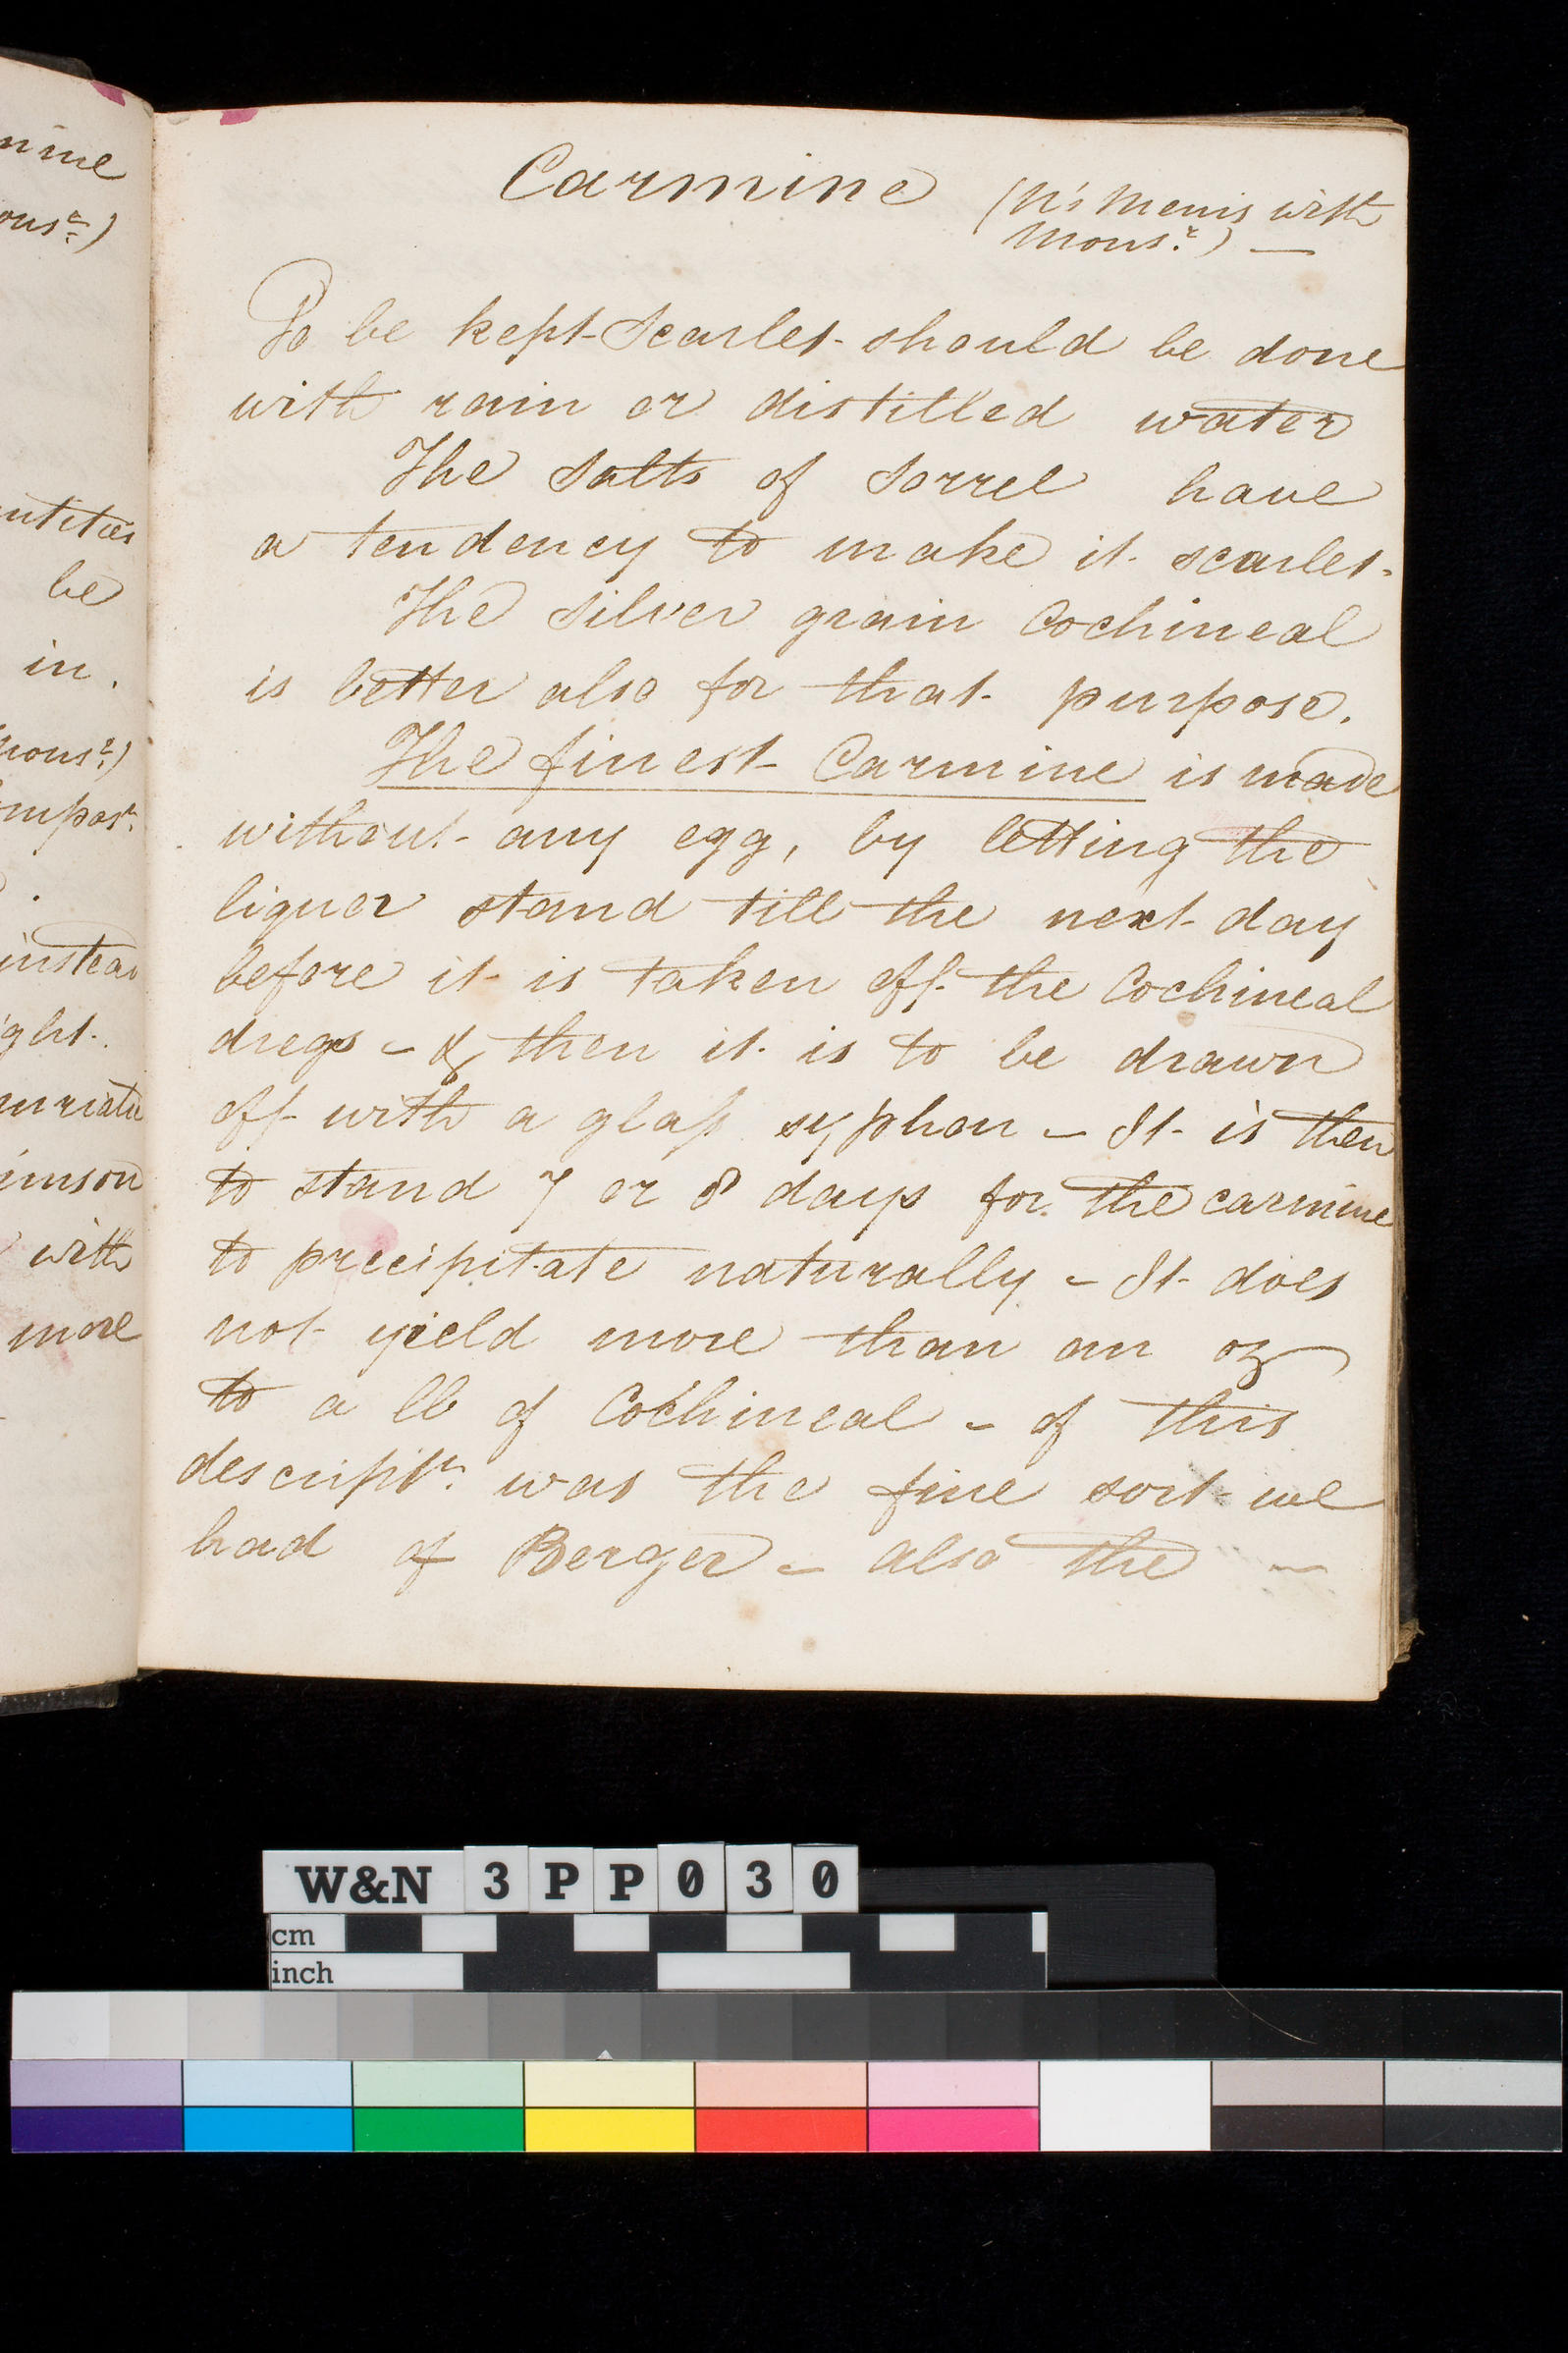 mine
ons.r)
ntities
be
in.
Mons.r)
instead
ght.
muriate
imson
with
more
Carmine (N's Mems with
Mons.r) —
To be kept Scarlet should be done
with rain or distilled water
The Salts of Sorrel have
a tendency to make it scarlet.
The Silver grain Cochineal
is better also for that purpose.
The finest Carmine is made
without any egg, by letting the
liquor stand till the next day
before it is taken off the Cochineal
dregs - & then it is to be drawn
off with a glass syphon - It is then
to stand 7 or 8 days for the carmine
to precipitate naturally - It does
not yield more than an oz
to a lb of Cochineal - of this
descriptn. was the fine sort we
had of Berger - also the -
W&N 3PP030
cm
inch